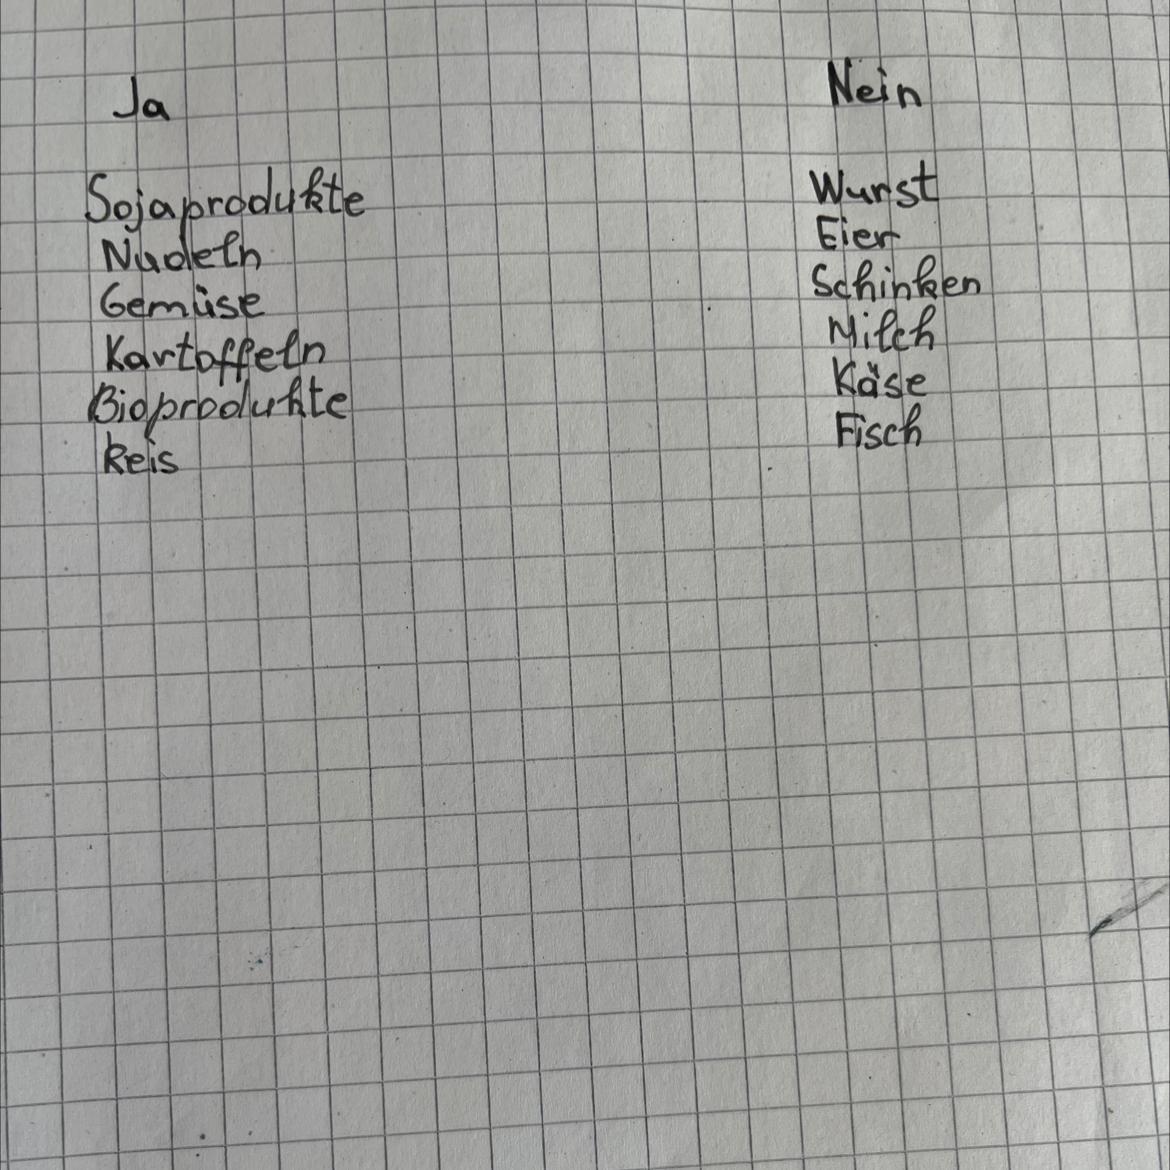 Ja
Sojaprodukte
Nudeln
Gemüse
Kartoffeln
Bioprodukte
Reis
Nein
Wurst
Eier
Schinken
Milch
Käse
Fisch